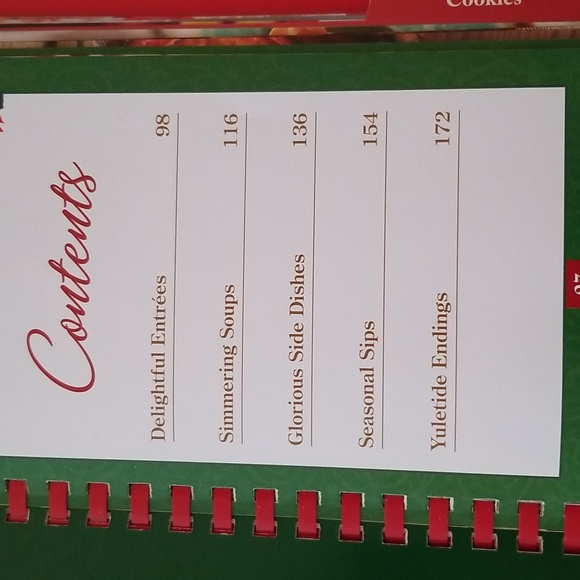 Cookies
Contents
Delightful Entrées 98
Simmering Soups 116
Glorious Side Dishes 136
Seasonal Sips 154
Yuletide Endings 172